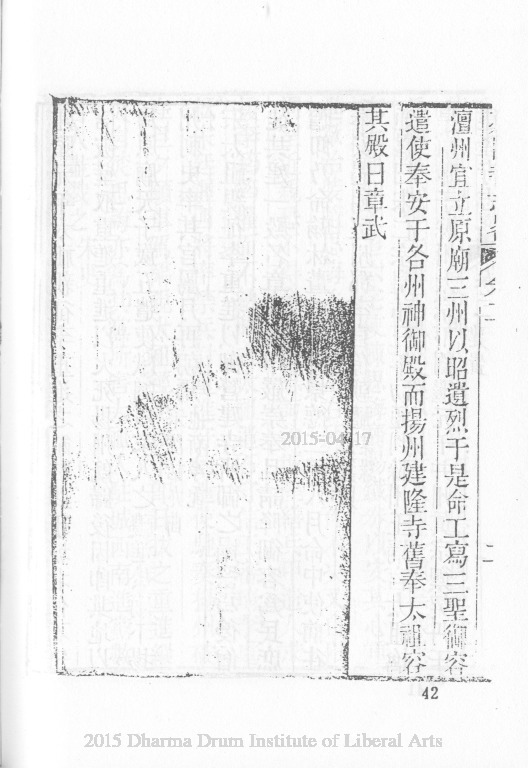 澶州宜立原廟三州以昭遺烈于是命工寫三聖御容
遣使奉安于各州神御殿而揚州建隆寺舊奉太祖容
其殿曰章武
2015-04-17
42
2015 Dharma Drum Institute of Liberal Arts